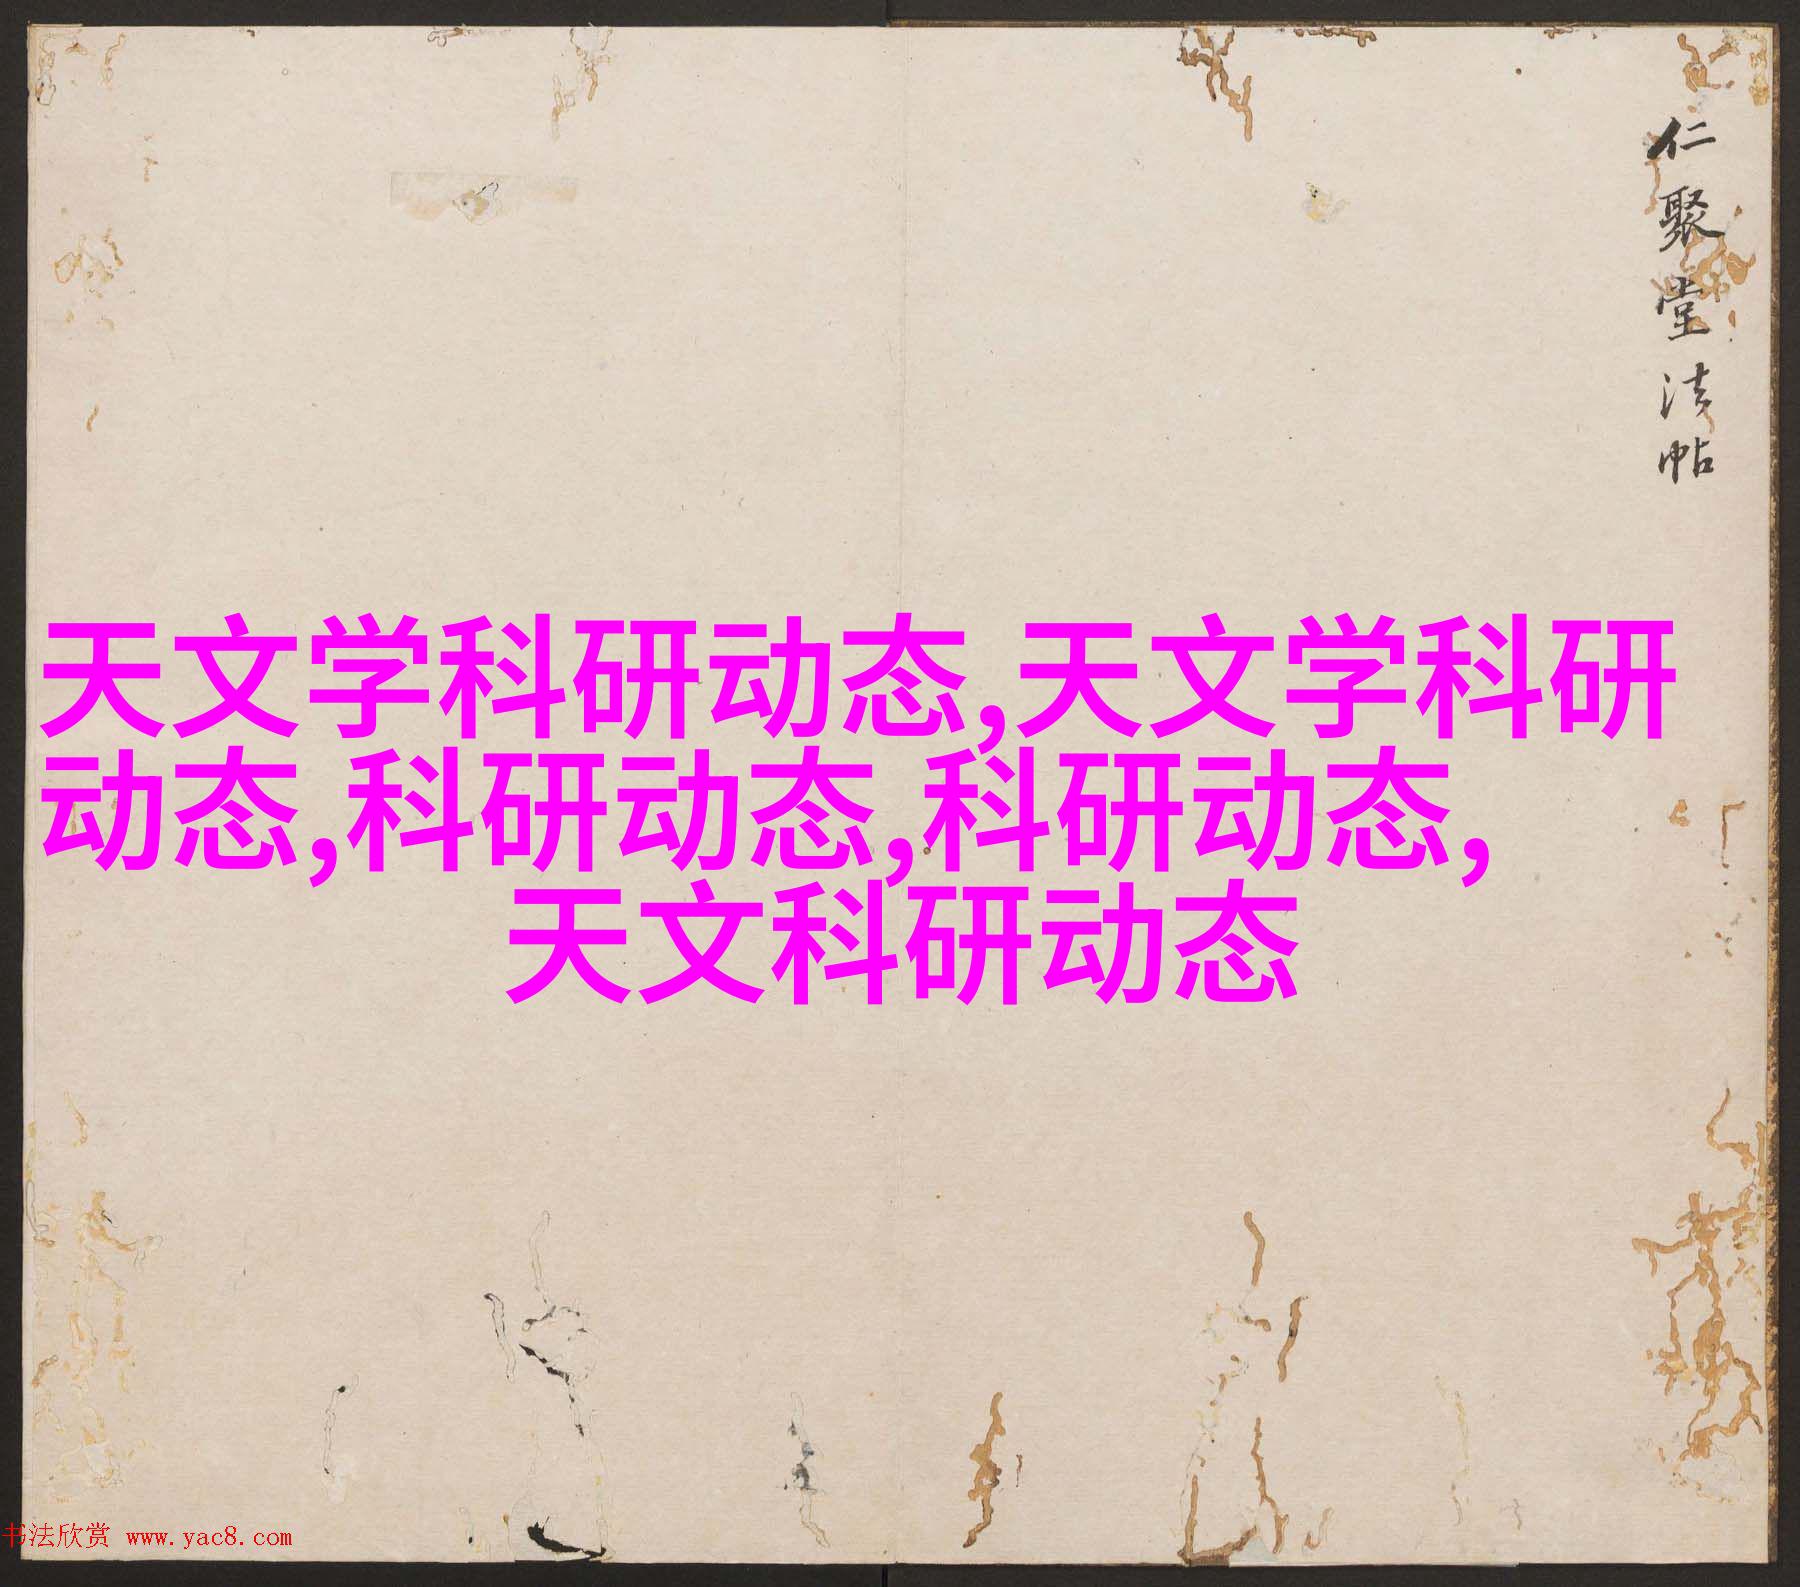 仁聚堂法帖
天文学科研动态,天文学科研
动态,科研动态,科研动态,
天文科研动态
书法欣赏 www.yac8.com